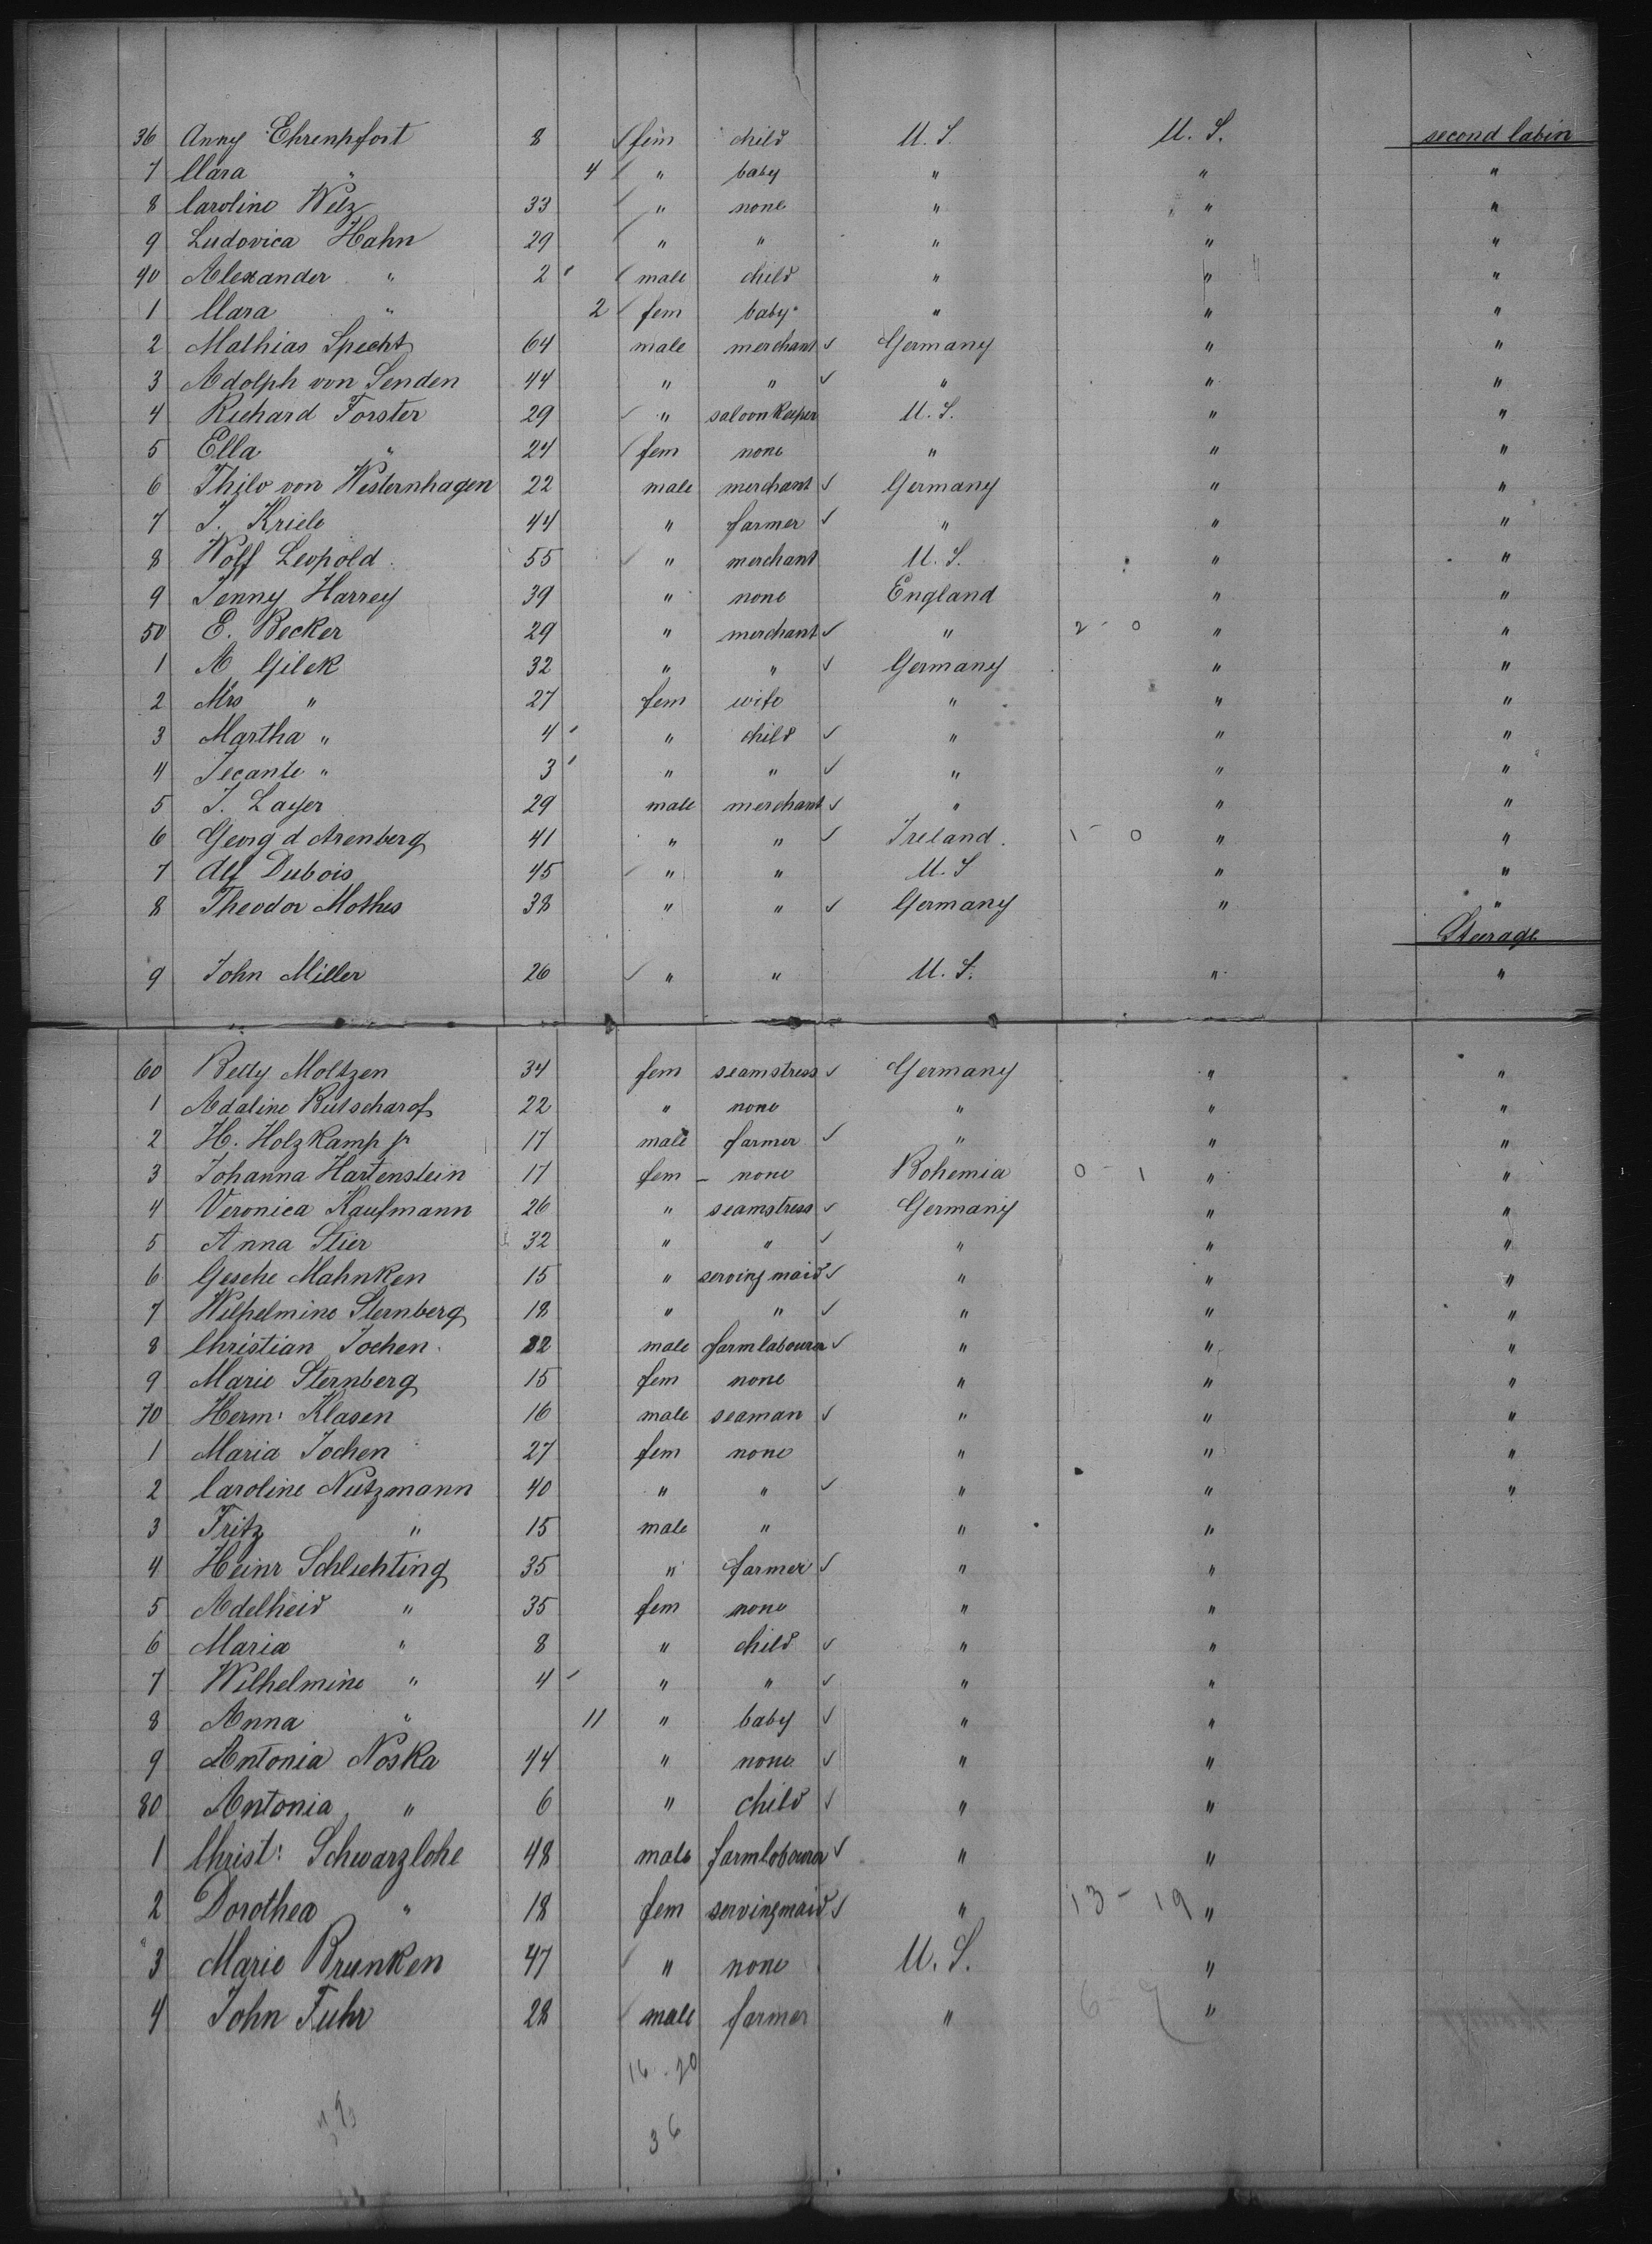 36 Anny Ehrenpfort 8 fem child U. S. U. S. second Cabin
7 Clara " 4 " baby " " "
8 Caroline Welz 33 " none " " "
9 Ludovica Hahn 29 " " " " "
40 Alexander " 2 male child " " "
1 Clara " 2 fem baby " " "
2 Mathias Specht 64 male merchant Germany " "
3 Adolph von Senden 44 " " " " "
4 Richard Forster 29 " saloon Keeper U. S. " "
5 Ella " 24 fem none " " "
6 Thilo von Westernhagen 22 male merchant Germany " "
7 J. Kriele 44 " farmer " " "
8 Wolf Leopold 55 " merchant U. S. " "
9 Jenny Harrey 39 " none England " "
50 E. Becker 29 " merchant " 2 - 0 " "
1 A Gilek 32 " " Germany " "
2 Mrs " 27 fem wife " " "
3 Martha " 4 " child " " "
4 " 3 " " " " "
5 J. Layer 29 male merchant " " "
6 Georg d Arenberg 41 " " Ireland. 1 - 0 " "
7 Alf Dubois 45 " " U. S " "
8 Theodor Mothes 38 " " Germany " "
Steerage
9 John Miller 26 " " U. S. " "
60 Betty Moltzen 34 fem seamstress Germany " "
1 Adaline Butscharof 22 " none " " "
2 H. Holzkamp jr 17 male farmer " " "
3 Johanna Hartenstein 17 fem - none Bohemia 0 - 1 " "
4 Veronica Kaufmann 26 " seamstress Germany " "
5 Anna Stier 32 " " " " "
6 Gesche Mahnken 15 " serving maid " " "
7 Wilhelmine Sternberg 18 " " " " "
8 Christian Jochen 32 male farmlabourer " " "
9 Marie Sternberg 15 fem none " " "
70 Herm: Klasen 16 male seaman " " "
1 Maria Jochen 27 fem none " " "
2 Caroline Nutzmann 40 " " " " "
3 Fritz " 15 male " " "
4 Heinr Schlichting 35 " farmer " "
5 Adelheid " 35 fem none " "
6 Maria " 8 " child " "
7 Wilhelmine " 4 " " " "
8 Anna " 11 " baby " "
9 Antonia Noska 44 " none " "
80 Antonia " 6 " child " "
1 Christ: Schwarzlohe 48 male farmlobourer " "
2 Dorothea " 18 fem servingmaid " 13 - 19 "
3 Marie Brunken 47 " none U. S. "
4 John Fuhr 28 male farmer " 6 - 7 "
16 - 20
36